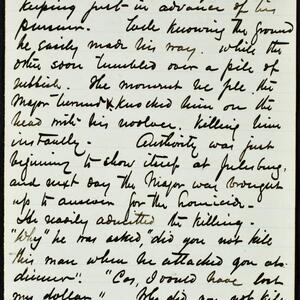 keeping just in advance of his
pursuer. Well knowing the ground
he easily made his way. while the
other soon tumbled over a pile of
rubbish. The moment he fell the
Major turned & knocked him on the
head with his revolver. Killing him
instantly. Authority was just
beginning to show itself at Julesburg,
and next day the Major was brought
up to answer for the homicide.
He easily admitted the killing.
"Why" he was asked "did you not kill
this man when he attacked you at
dinner". "Cos, I would have lost
my dollar" Why did you not